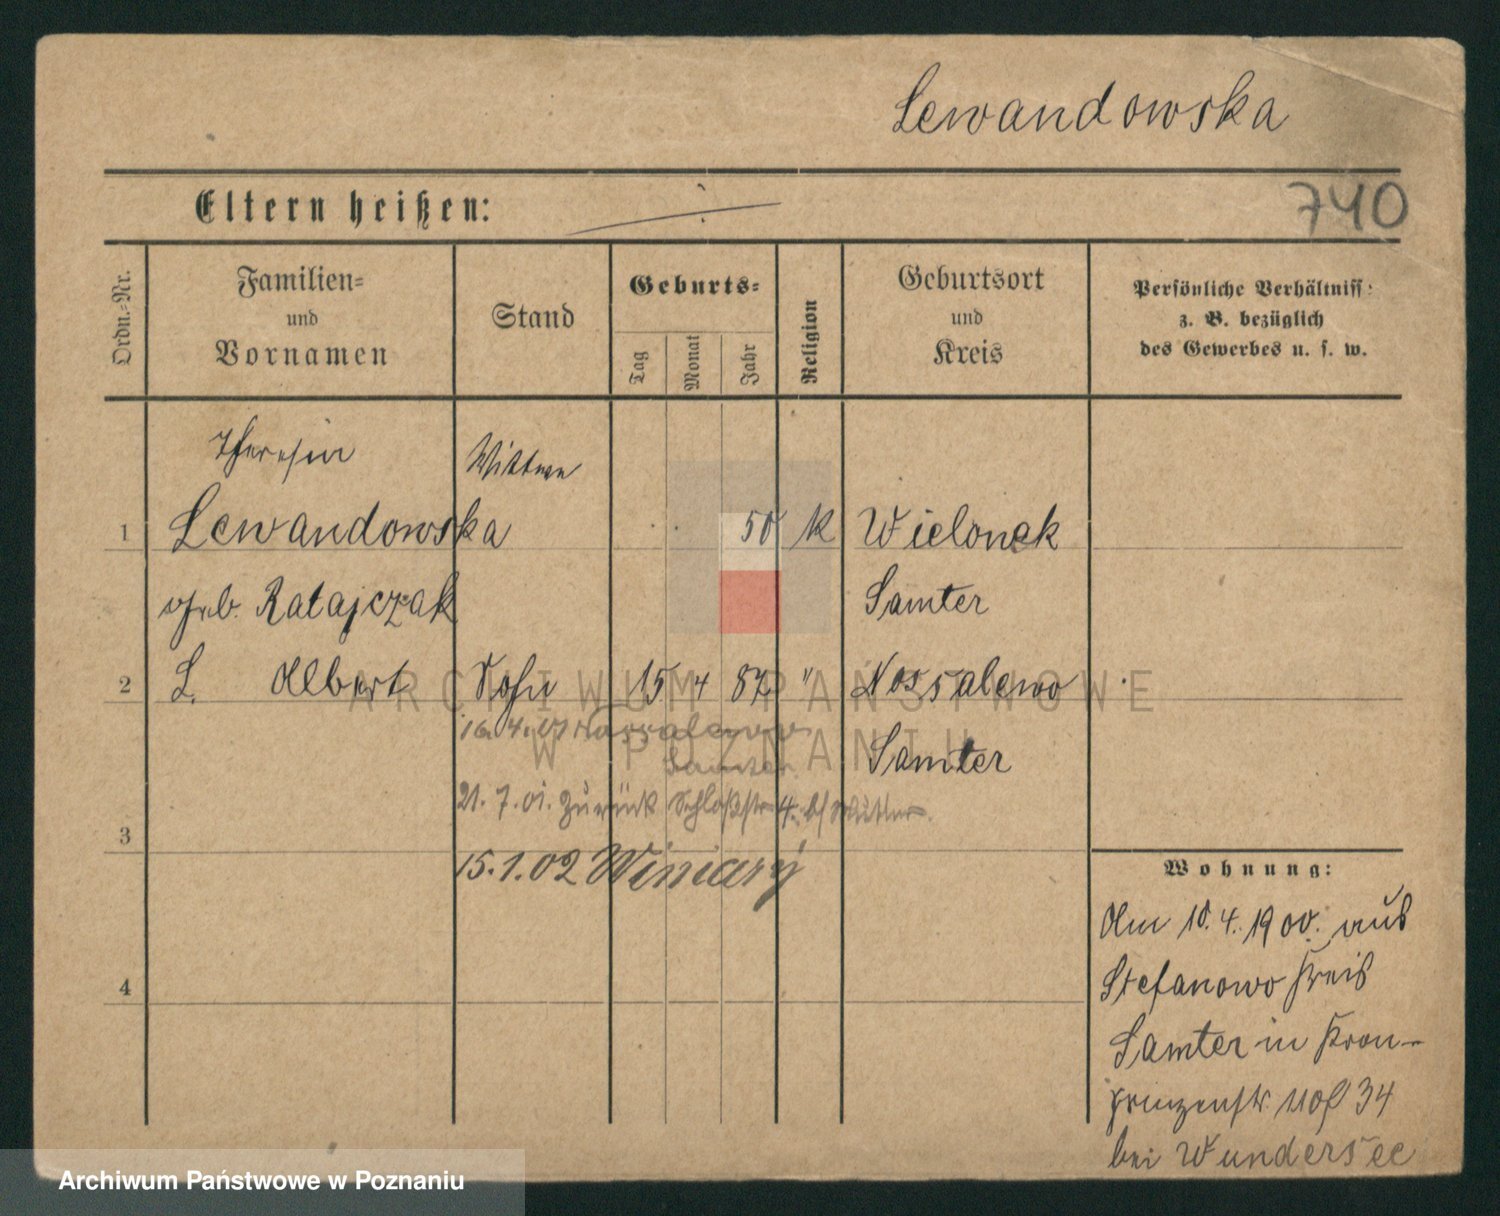 Lewandowska
740
Eltern heißen:
Ordn.-Nr.
Familien-
und
Vornamen
Stand
Geburts-
Tag
Monat
Jahr
Religion
Geburtsort
und
Kreis
Persönliche Verhältniss
z. B. bezüglich
des Gewerbes u. s. w.
Theresia Wittwe
1 Lewandowska 50 k Wielonek
geb. Ratajczak Samter
2 L. Albert Sohn 15 4 87 " Nossalewo
16.4.01 Nossalewo
Samter
Samter
21.7.01. zurück Schloßstr 4. b/ Mutter.
3
15.1.02 Winiary
4
Wohnung:
Am 10.4.1900. aus
Stefanowo Kreis
Samter in Kron-
prinzenstr. 34
bei Wundersee
ARCHIWUM PAŃSTWOWE
W POZNANIU
Archiwum Państwowe w Poznaniu